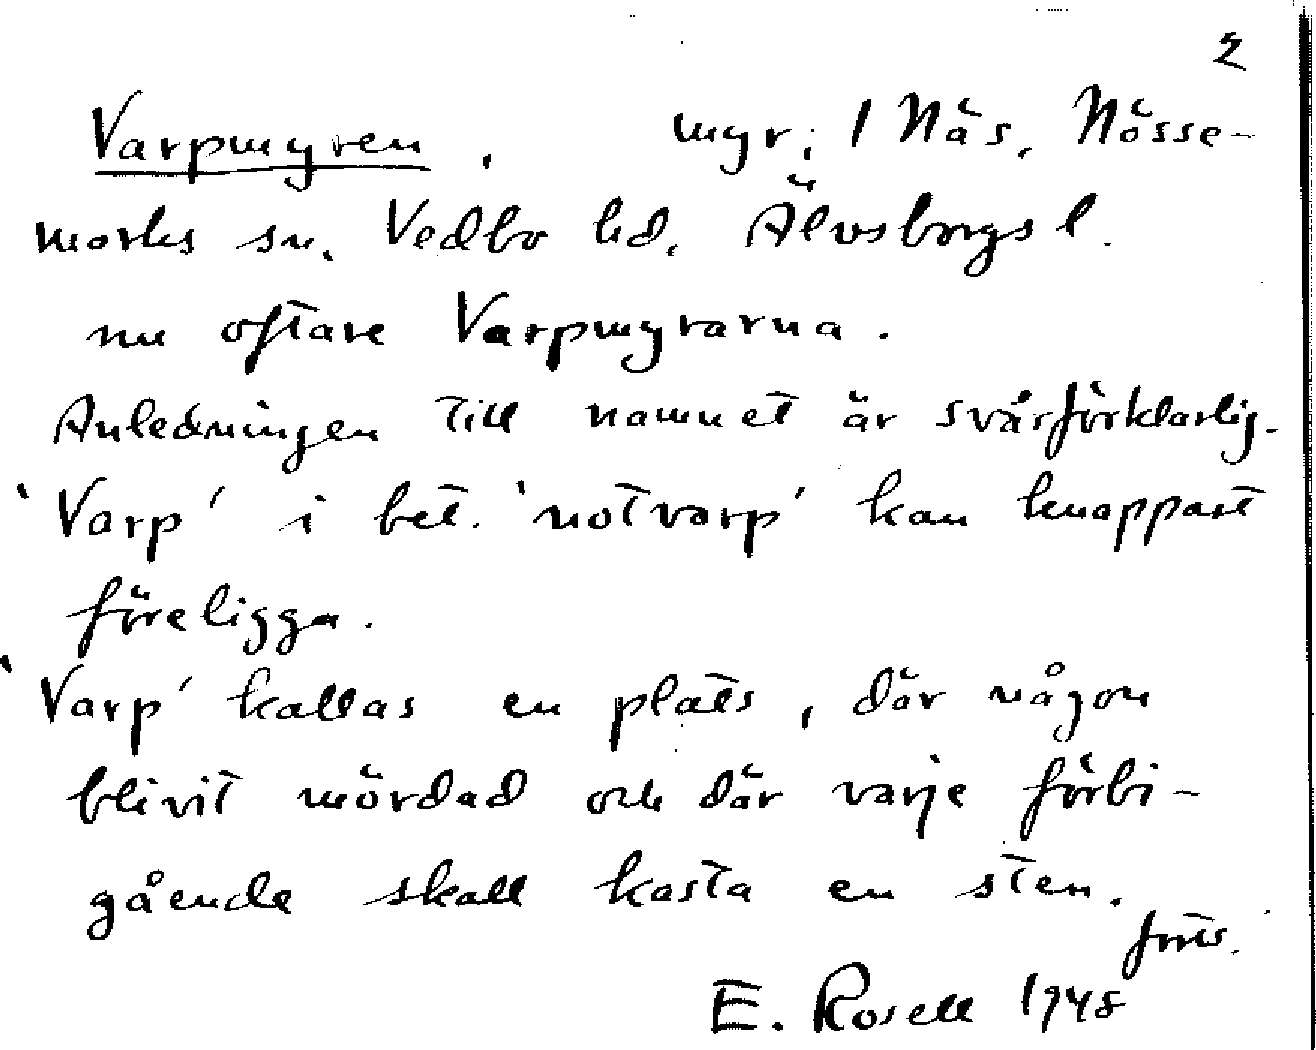 2
Varpmyren, myr; 1 Näs, Nösse-
marks sn. Vedbo hd. Älvsborgs l.
nu oftare Varpmyrarna.
Anledningen till namnet är svårförklarlig.
'Varp' i bet. 'notvarp' kan knappast
föreligga.
'Varp' kallas en plats, där någon
blivit mördad och där varje förbi-
gående skall kasta en sten.
forts.
E. Rosell 1948